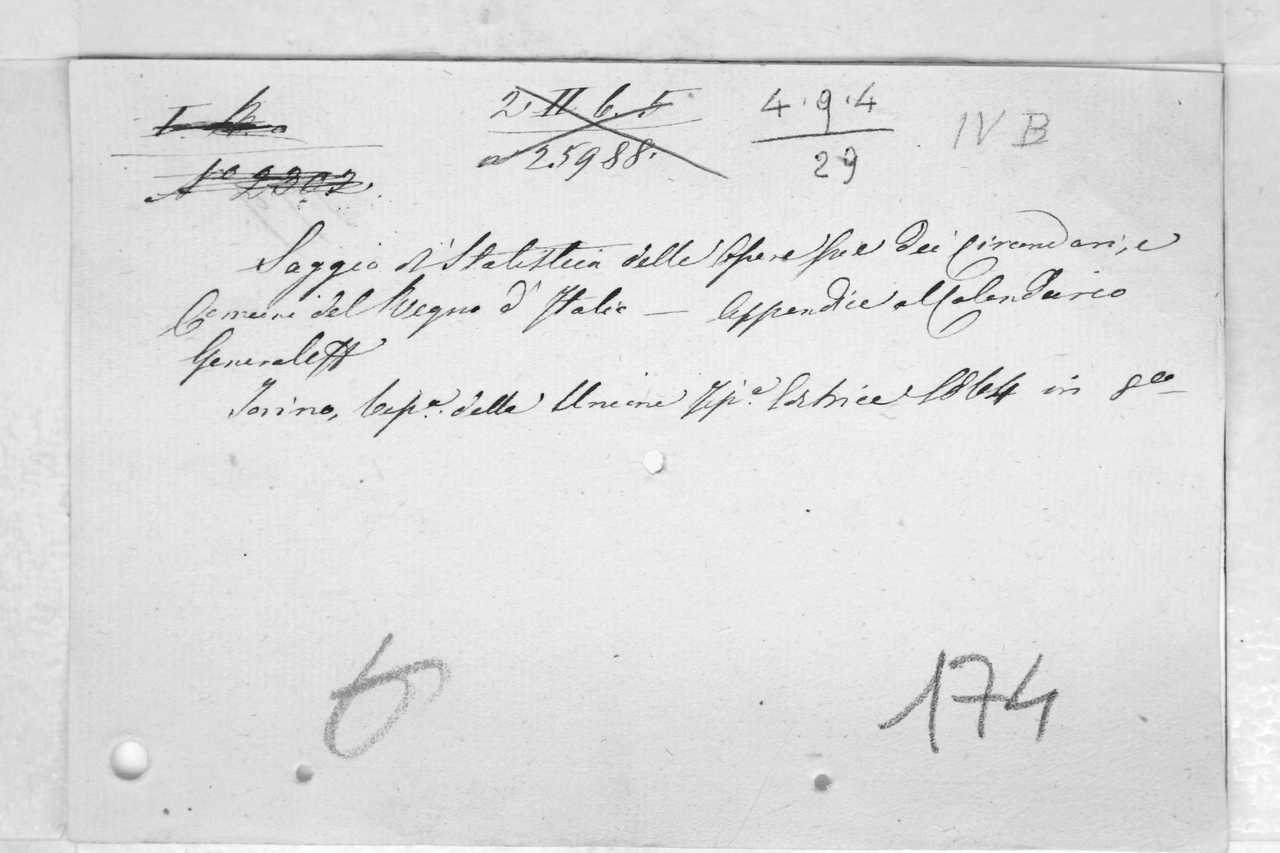 2. II. 6. 5
25988.
4.9.4
29
IV B
Saggio di Statistica delle Opere Pie dei Circondari, e
Comuni del Regno d'Italia — Appendice al Calendario
Generale
Torino, della Unione Tip.a Editrice 1864 in 8vo
6
174